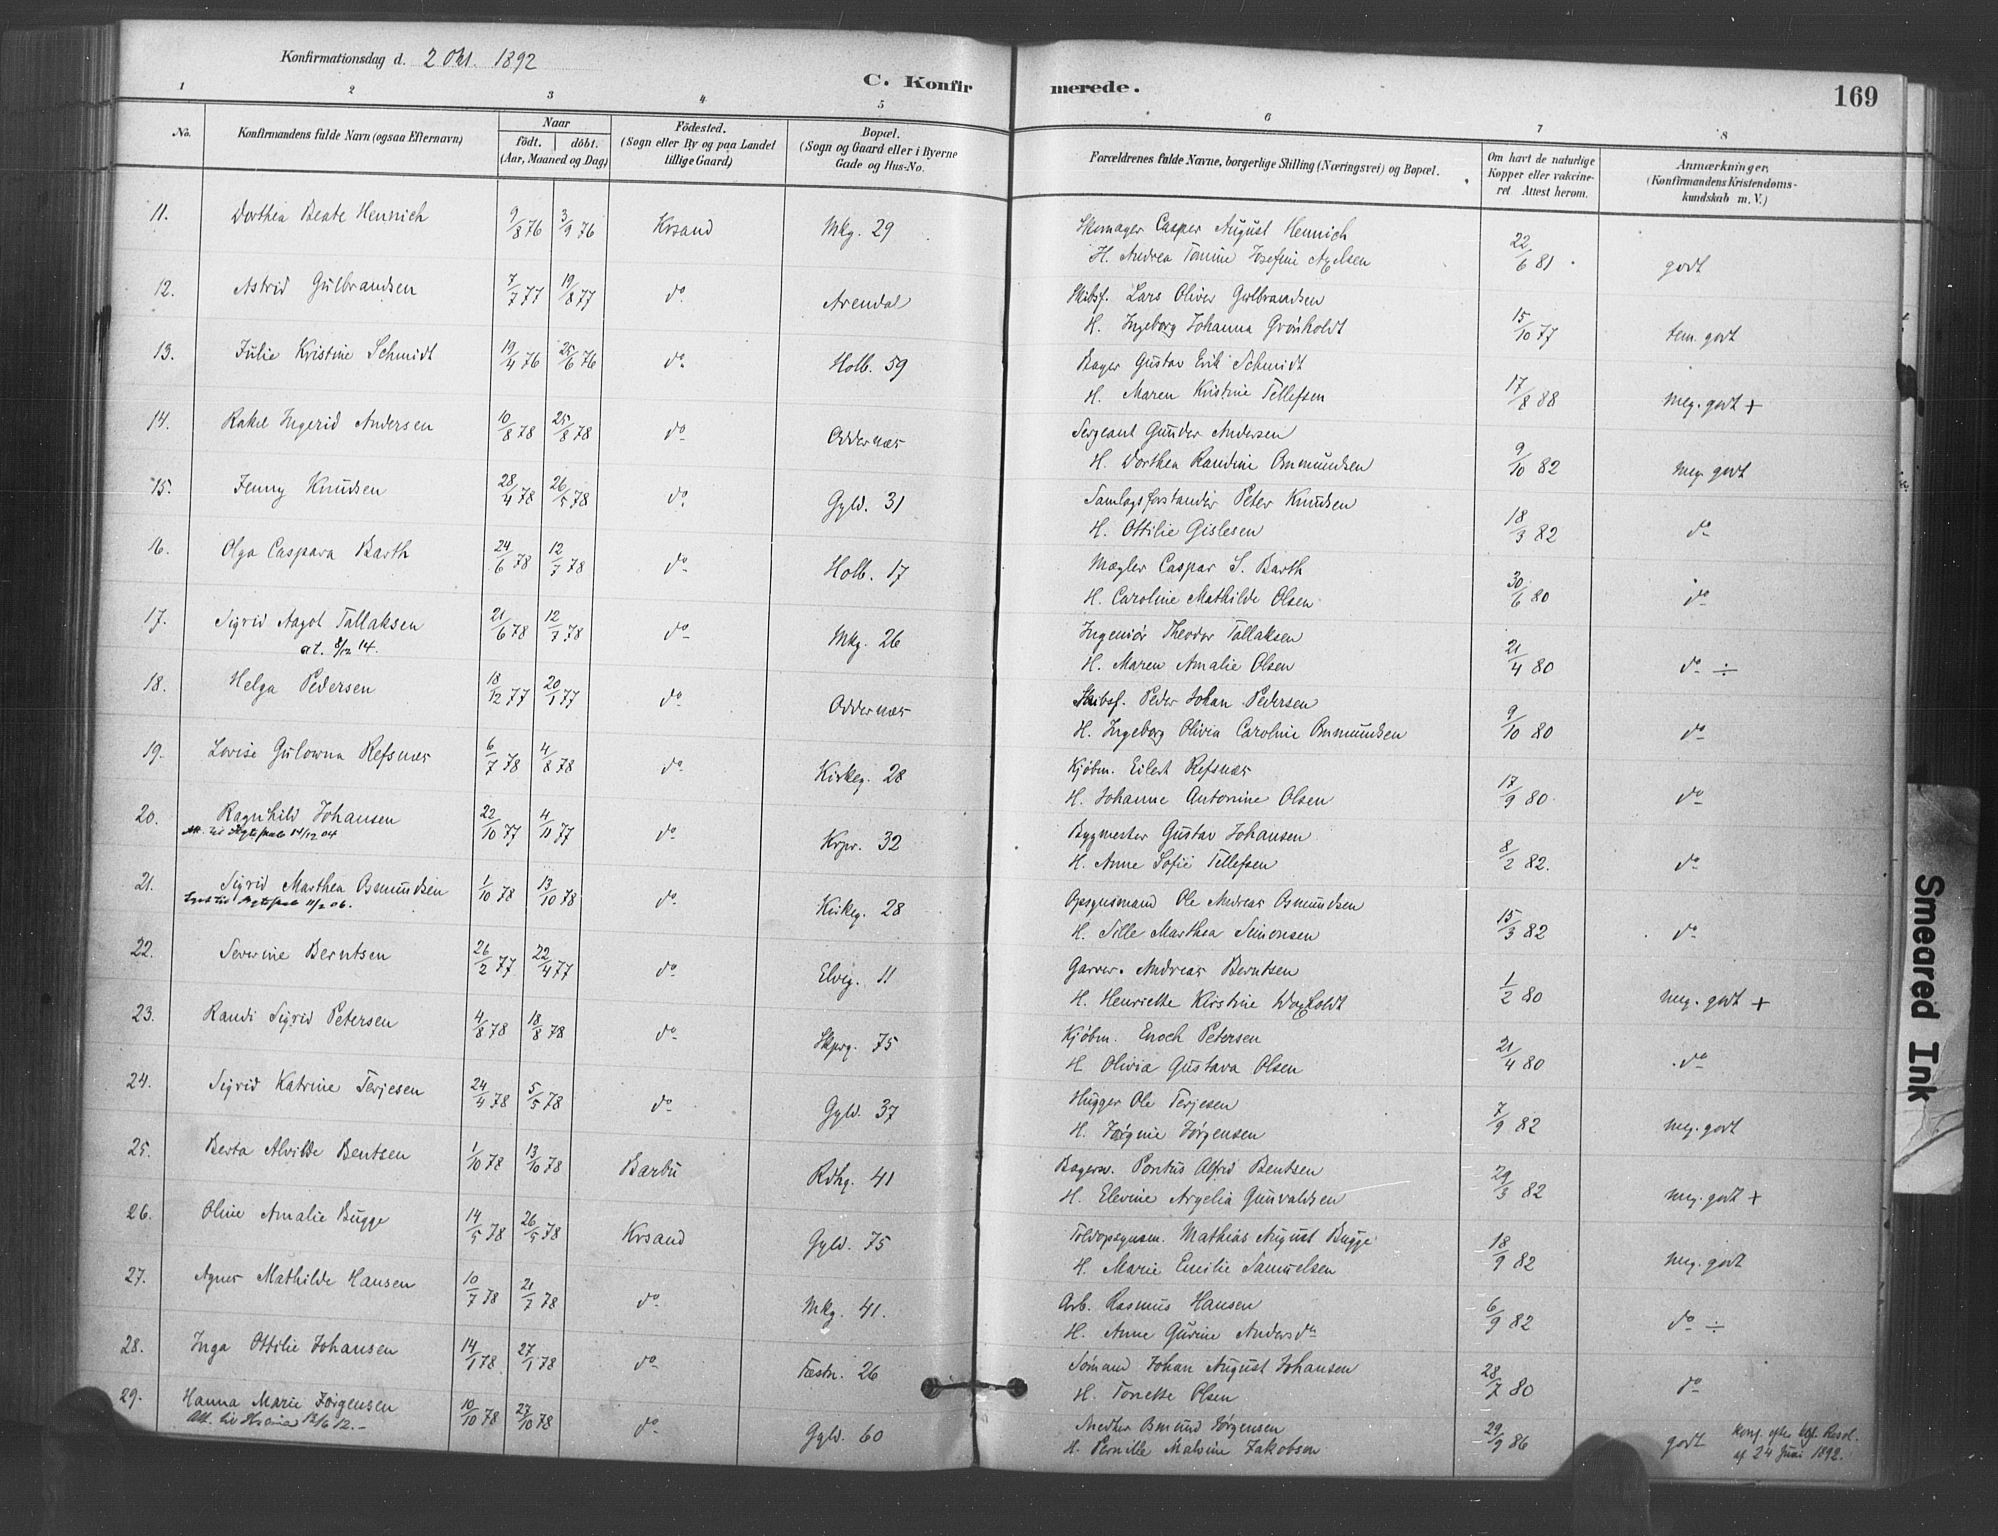 Konfirmationsdag d. 2 Okt. 1892
C. Konfirmerede.
169
1 2 3 4 5 6 7 8
No.
Konfirmandens fulde Navn (ogsaa Efternavn)
Naar
födt. döbt.
(Aar, Maaned og Dag)
Födested.
(Sogn eller By og paa Landet
tillige Gaard)
Bopæl.
(Sogn og Gaard eller i Byerne
Gade og Hus-No.
Forældrenes fulde Navne, borgerlige Stilling (Næringsvei) og Bopæl.
Om havt de naturlige
Kopper eller vakcine-
ret Attest herom.
Anmærkninger,
(Konfirmandens Kristendoms-
kundskab m. V.)
11. Dorthea Beate Hennich 9/8 76 3/9 76 Krsand Mkg. 29 Skomager Casper August Hennich
H. Andrea Tomine Josefine Axelsen 22/6 81 godt
12. Astrid Gulbrandsen 7/7 77 19/8 77 do Arendal Skibsf. Lars Oliver Gulbrandsen
H. Ingeborg Johanna Grönholdt 15/10 77 tem. godt
13. Julie Kristine Schmidt 19/4 76 25/6 76 do Holb. 59 Bager Gustav Erik Schmidt
H. Maren Kristine Tellefsen 17/8 88 meg. godt +
14. Rakel Ingerid Andersen 10/8 78 25/8 78 do Oddernæs Sergeant Gunder Andersen
H. Dorthea Randine Ommundsen 9/10 82 meg. godt
15. Jenny Knudsen 28/4 78 26/5 78 do Gyld. 31 Samlagsforstander Peter Knudsen
H. Ottilie Gislesen 18/3 82 do
16. Olga Caspara Barth 24/6 78 12/7 78 do Holb. 17 Mægler Caspar S. Barth
H. Caroline Mathilde Olsen 30/6 80 do
17. Sigrid Aagot Tallaksen 21/6 78 12/7 78 do Mkg. 26 Ingeniör Theodor Tallaksen
at. 8/12 14.
H. Maren Amalie Olsen 21/4 80 do ÷
18. Helga Pedersen 18/12 77 20/1 77 do Oddernæs Skibsf. Peder Johan Pedersen
H. Ingeborg Olivia Caroline Ommundsen 9/10 80 do
19. Lovise Gulowna Refsnæs 6/7 78 4/8 78 do Kirkeg. 28 Kjöbm. Eilert Refsnæs
H. Johanne Antonine Olsen 17/9 80. do
20. Ragnhild Johansen 22/10 77 4/11 77 do Krpr. 32 Bygmester Gustav Johansen
H. Anne Sofie Tellefsen 8/2 82. do
21. Sigrid Marthea Osmundsen 1/10 78 13/10 78 do Kirkeg. 28 Opsynsmand Ole Andreas Osmundsen
H. Sille Marthea Simonsen 15/3 82 do
22. Severine Berntsen 26/2 77 22/4 77 do Elveg. 11 Garver. Andreas Berntsen
H. Henriette Kirstine Woxholdt 1/2 80 meg. godt +
23. Randi Sigrid Petersen 4/8 78 18/8 78 do Skprg. 75 Kjöbm. Enoch Petersen
H Olivia Gustava Olsen 21/4 80 do
24. Sigrid Katrine Terjesen 24/4 78 5/5 78 do Gyld. 37 Hugger Ole Terjesen
H. Jörgine Jörgensen 7/9 82 meg. godt
25. Berta Alvilde Bentsen 1/10 78 13/10 78 Barbu Rdhg. 41 Bagerm. Pontus Alfrid Bentsen
H. Elevine Argelia Gunvaldsen 29/3 82 meg. godt +
26. Oline Amalie Bugge 14/5 78 26/5 78 Krsand Gyld. 75 Toldopsynsm. Mathias August Bugge
H. Marie Emilie Samuelsen 18/9 82 meg. godt
27. Agnes Mathilde Hansen 10/7 78 21/7 78 do Mkg. 41. Arb. Rasmus Hansen
H. Anne Gurine Andersdr 6/9 82 do ÷
28. Inga Ottilie Johansen 14/1 78 27/1 78 do Fæstn. 26 Sömand Johan August Johansen
H. Tonette Olsen 28/7 80 do
29. Hanna Marie Jörgensen 10/10 78 27/10 78 do Gyld. 60 Snedker Osmund Jörgensen
H. Pernille Malvine Jakobsen 29/9 86 godt konf. efter kgl. Resol.
af 24 Juni 1892.
Smeared Ink